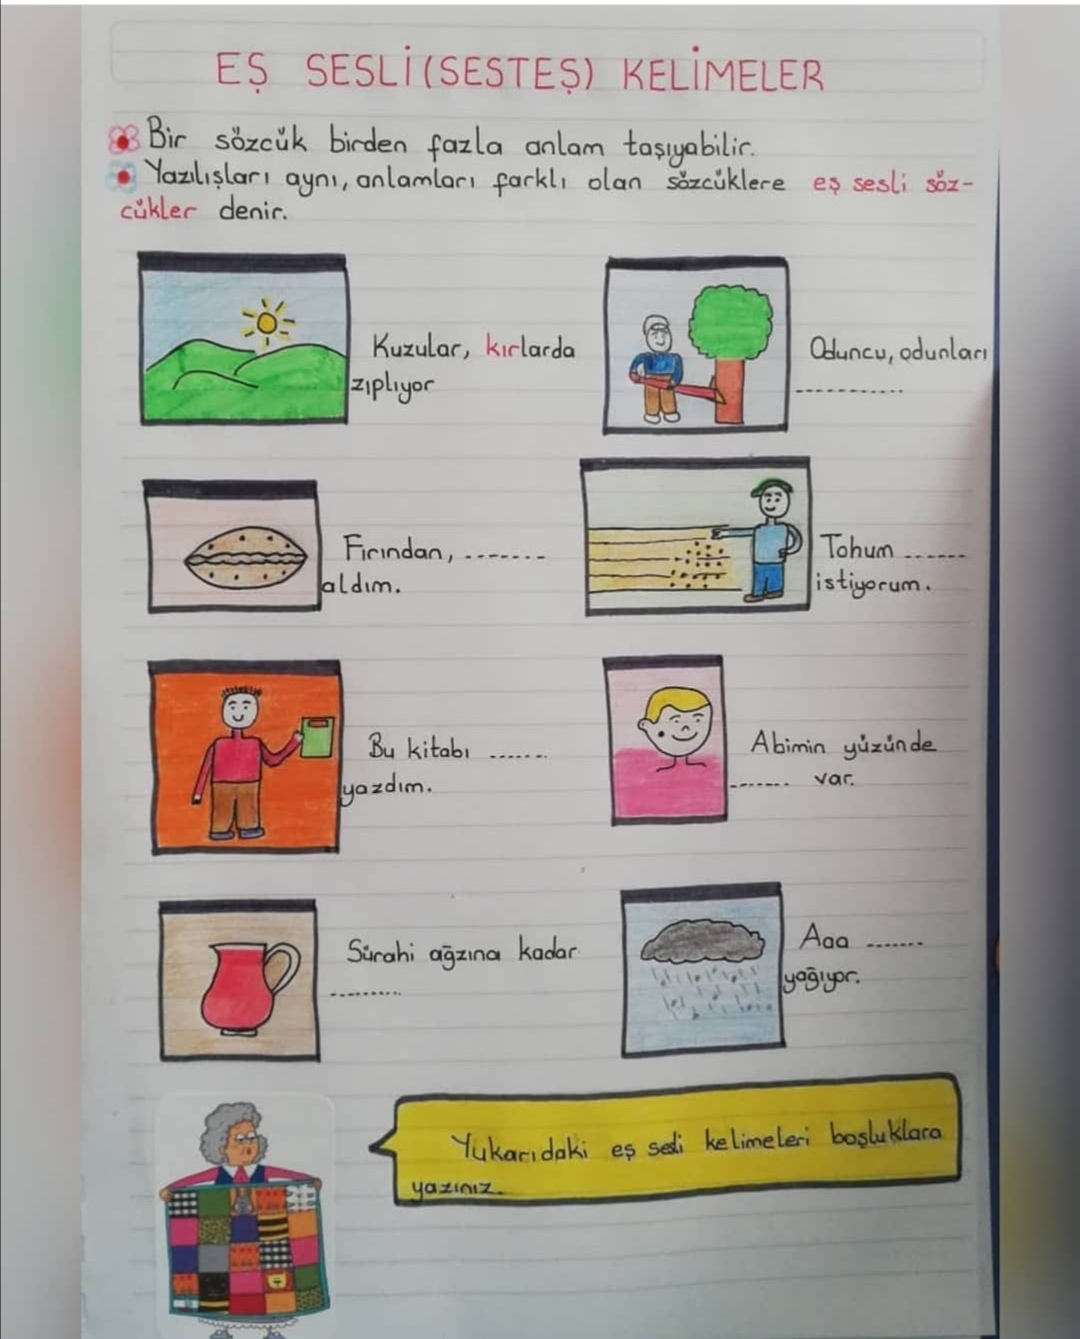 EŞ SESLİ(SESTEŞ) KELİMELER
Bir sözcük birden fazla anlam taşıyabilir.
Yazılışları aynı, anlamları farklı olan sözcüklere eş sesli söz-
cükler denir.
Kuzular, kırlarda
zıplıyor
Oduncu, odunları
..............
Fırından, ........
aldım.
Tohum ......
istiyorum.
Bu kitabı .......
yazdım.
Abimin yüzünde
....... var.
Sürahi ağzına kadar
.........
Aaa .......
yağıyor.
Yukarıdaki eş sesli kelimeleri boşluklara
yazınız.